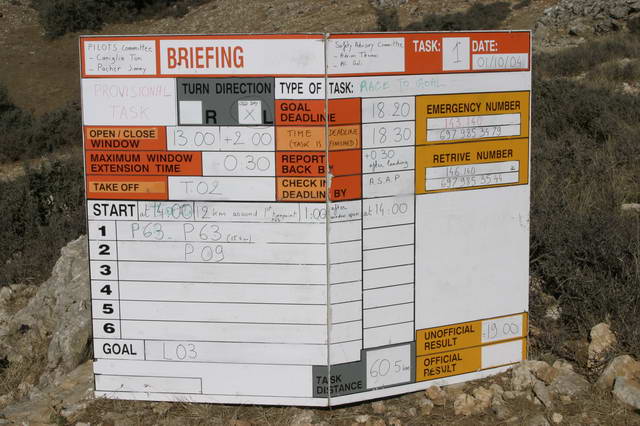 PILOTS Committee
- Caniglia Tom
- Pacher Jimmy
BRIEFING
Safety Advisory Committee
TASK: 1
DATE:
01/10/04
PROVISIONAL
TASK
TURN DIRECTION
R X L
TYPE OF TASK: RACE TO GOAL
GOAL
DEADLINE
18.20
EMERGENCY NUMBER
143 140
697 985 3579
OPEN / CLOSE
WINDOW
13.00 +2.00
TIME DEADLINE
(TASK IS FINISHED)
18.30
MAXIMUM WINDOW
EXTENSION TIME
0.30
REPORT
BACK BY
+0,30
after landing
RETRIVE NUMBER
146 140
697 985 3544
TAKE OFF
T02
CHECK IN
DEADLINE BY
A.S.A.P
START
at 14:00
12 km around 1st
1:00
after
window open
at 14:00
1 P63 - P63
2 P09
3
4
5
6
GOAL L03
UNOFFICIAL
RESULT
19.00
OFFICIAL
RESULT
TASK
DISTANCE
60.5 km